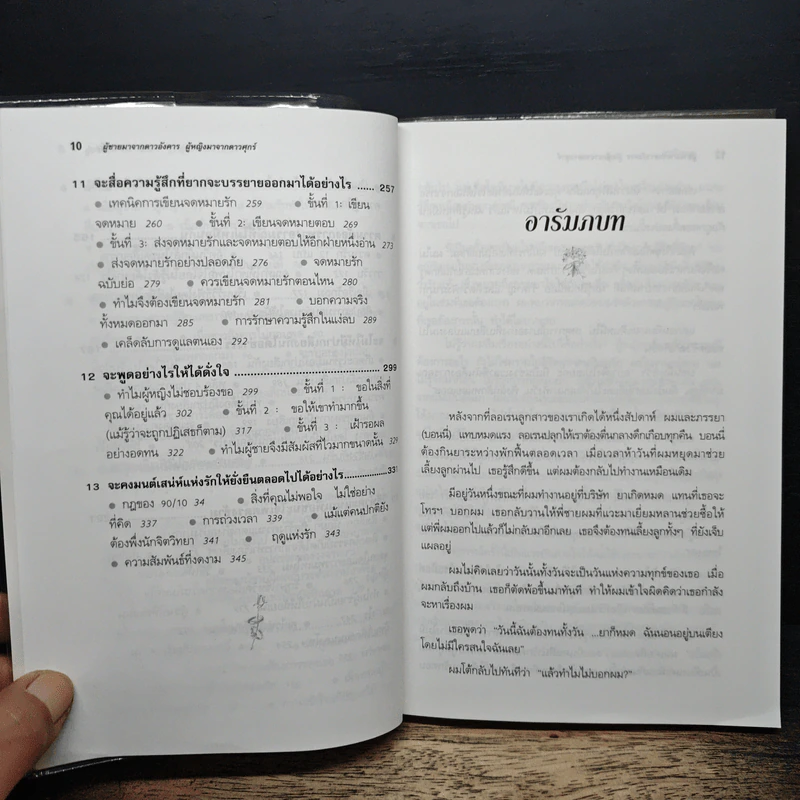 10 ผู้ชายมาจากดาวอังคาร ผู้หญิงมาจากดาวศุกร์
11 จะสื่อความรู้สึกที่ยากจะบรรยายออกมาได้อย่างไร ...... 257
● เทคนิคการเขียนจดหมายรัก 259 ● ขั้นที่ 1: เขียน
จดหมาย 260 ● ขั้นที่ 2: เขียนจดหมายตอบ 269
● ขั้นที่ 3: ส่งจดหมายรักและจดหมายตอบให้อีกฝ่ายหนึ่งอ่าน 273
● ส่งจดหมายรักอย่างปลอดภัย 276 ● จดหมายรัก
ฉบับย่อ 279 ● ควรเขียนจดหมายรักตอนไหน 280
● ทำไมจึงต้องเขียนจดหมายรัก 281 ● บอกความจริง
ทั้งหมดออกมา 285 ● การรักษาความรู้สึกในแง่ลบ 289
● เคล็ดลับการดูแลตนเอง 292
12 จะพูดอย่างไรให้ได้ดั่งใจ ........................................ 299
● ทำไมผู้หญิงไม่ชอบร้องขอ 299 ● ขั้นที่ 1 : ขอในสิ่งที่
คุณได้อยู่แล้ว 302 ● ขั้นที่ 2 : ขอให้เขาทำมากขึ้น
(แม้รู้ว่าจะถูกปฏิเสธก็ตาม) 317 ● ขั้นที่ 3 : เฝ้ารอผล
อย่างอดทน 322 ● ทำไมผู้ชายจึงมีสัมผัสที่ไวมากขนาดนั้น
13 จะคงมนต์เสน่ห์แห่งรักให้ยั่งยืนตลอดไปได้อย่างไร.................
● กฎของ 90/10 34 ● สิ่งที่คุณไม่พอใจ ไม่ใช่อย่าง
ที่คิด 337 ● การถ่วงเวลา 339 ● แม้แต่คนปกติยัง
ต้องพึ่งนักจิตวิทยา 341 ● ฤดูแห่งรัก 343
● ความสัมพันธ์ที่งดงาม 345
อารัมภบท
หลังจากที่ลอเรนลูกสาวของเราเกิดได้หนึ่งสัปดาห์ ผมและภรรยา
(บอนนี่) แทบหมดแรง ลอเรนปลุกให้เราต้องตื่นกลางดึกเกือบทุกคืน บอนนี่
ต้องกินยาระหว่างพักฟื้นตลอดเวลา เมื่อเวลาห้าวันที่ผมหยุดมาช่วย
เลี้ยงลูกผ่านไป เธอรู้สึกดีขึ้น แต่ผมต้องกลับไปทำงานเหมือนเดิม
มีอยู่วันหนึ่งขณะที่ผมทำงานอยู่ที่บริษัท ยาเกิดหมด แทนที่เธอจะ
โทรฯ บอกผม เธอกลับวานให้พี่ชายผมที่แวะมาเยี่ยมหลานช่วยซื้อให้
แต่พี่ผมออกไปแล้วก็ไม่กลับมาอีกเลย เธอจึงต้องทนเลี้ยงลูกทั้งๆ ที่ยังเจ็บ
แผลอยู่
ผมไม่คิดเลยว่าวันนั้นทั้งวันจะเป็นวันแห่งความทุกข์ของเธอ เมื่อ
ผมกลับถึงบ้าน เธอก็ตัดพ้อขึ้นมาทันที ทำให้ผมเข้าใจผิดคิดว่าเธอกำลัง
จะหาเรื่องผม
เธอพูดว่า "วันนี้ฉันต้องทนทั้งวัน ...ยาก็หมด ฉันนอนอยู่บนเตียง
โดยไม่มีใครสนใจฉันเลย"
ผมโต้กลับไปทันทีว่า "แล้วทำไมไม่บอกผม?"